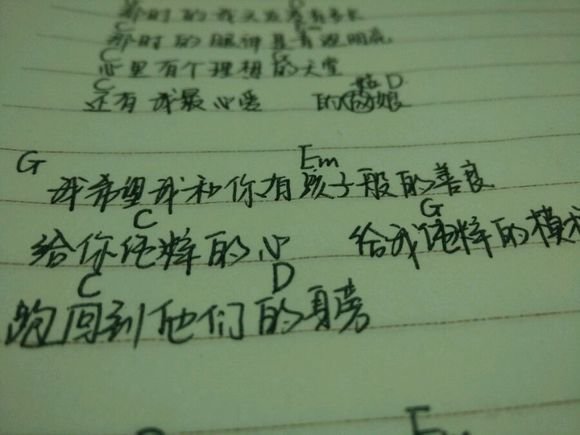 D
那时的我
那时的眼神是有迷明亮
C G
心里有个理想的天堂
C D
还有我最心爱 的姑娘
G Em
我希望我和你有孩子般的善良
C G
给你纯粹的心 给我纯粹的模样
C D
跑回到他们的身旁
Em